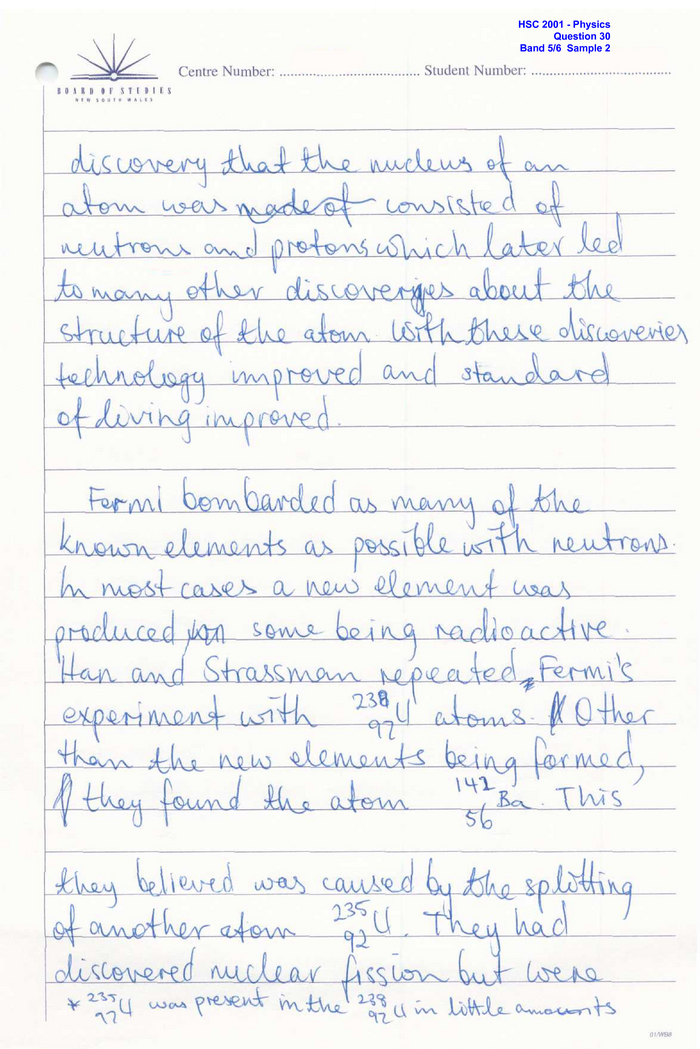 HSC 2001 - Physics
Question 30
Band 5/6 Sample 2
BOARD OF STUDIES
NEW SOUTH WALES
Centre Number: ............................................ Student Number: ............................................
discovery that the nucleus of an
atom was made of consisted of
neutrons and protons which later led
to many other discoveries about the
structure of the atom. With these discoveries
technology improved and standard
of living improved.
Fermi bombarded as many of the
known elements as possible with neutrons.
In most cases a new element was
produced, some being radioactive.
Han and Strassman repeated Fermi's
experiment with ²³⁸₉₂U atoms. Other
than the new elements being formed,
they found the atom ¹⁴²₅₆Ba. This
they believed was caused by the splitting
of another atom ²³⁵₉₂U. They had
discovered nuclear fission but were
* ²³⁵₉₂U was present in the ²³⁸₉₂U in little amounts
01/WB8